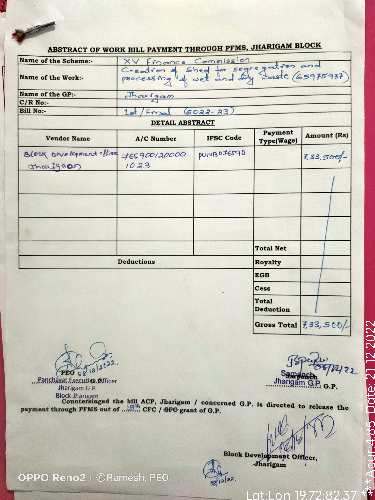 ABSTRACT OF WORK BILL PAYMENT THROUGH PFMS, JHARIGAM BLOCK
Name of the Scheme:- XV Finance Commission
Name of the Work:- Creation of Shed for segregation and
processing of wet and dry waste (65975937)
Name of the GP:- Jharigam
C/R No:-
Bill No:- 1st/Final (2022-23)
DETAIL ABSTRACT
Vendor Name A/C Number IFSC Code Payment Type(Wage) Amount (Rs)
Block Development officer 7,33,500/-
Jharigaon 1023
Total Net
Deductions Royalty
KGB
Cess
Total
Deduction
Gross Total 7,33,500/-
PEO
Panchayat Executive Officer
Jharigam G.P.
Block Jharigam
Sarpanch
Jharigam G.P. G.P.
Countersigned the bill ACP, Jharigam / concerned G.P. is directed to release the
payment through PFMS out of CFC / SFC grant of G.P.
Block Development Officer,
Jharigam
OPPO Reno2 ©Ramesh, PEO
Lat:Lon 19.72:82.37
Acur:4.85 Date:21.12.2022